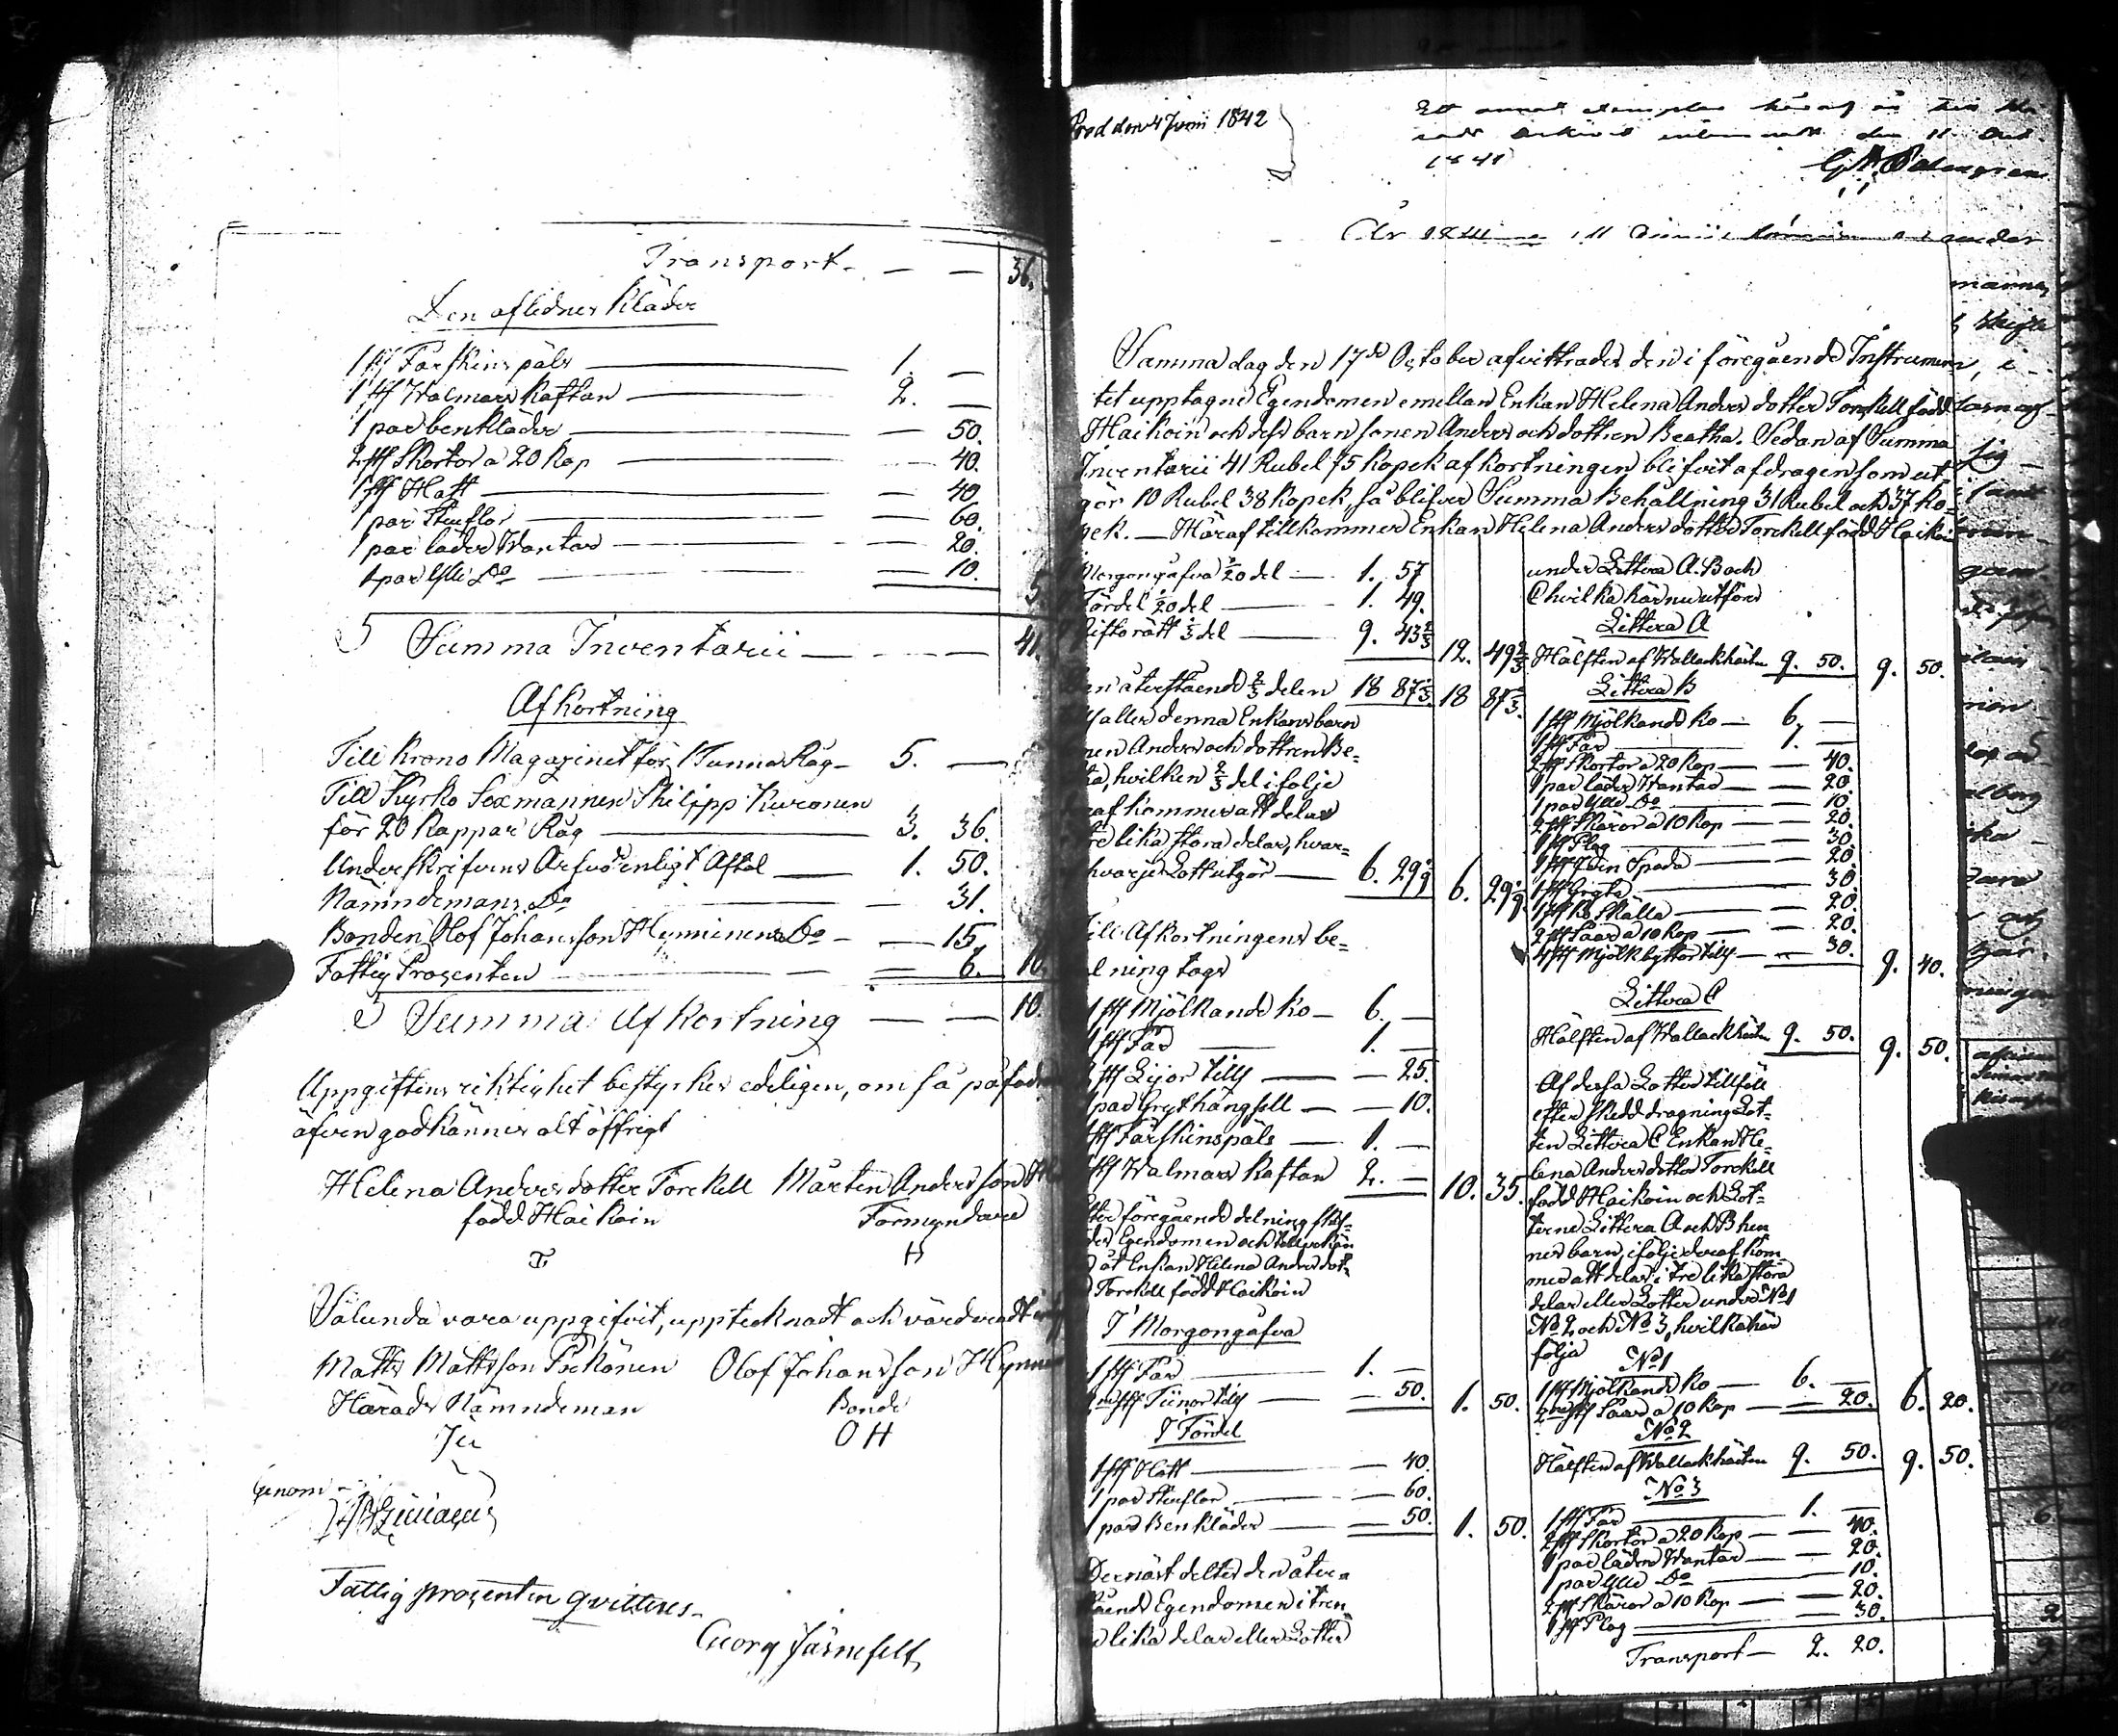 Transport — — 36.
Den aflednes Kläder
1 st Fårskins päls — 1. —
1 st Walmars Kaftan — 2. —
1 par benkläder — 50.
2 st Skortor a 20 Kop — 40.
1 st Hatt — 40.
1 par Stuflor — 60.
1 par läder Wantar — 20.
1 par Ylle Do — 10. 5
Summa Inventarii — — — 41.
Afkortning
Till Krono Magazinet för 1 Tunna Råg — 5. —
Till Kyrko Sexmannen Philipp Kuronen
för 20 Kappar Råg — 3. 36.
Underskrifvens Arfvod enligt Aftal — 1. 50.
Nämndemans Do — 31.
Bonden Olof Johansson Hynninens Do — 15.
Fattig Procenten — 6. 10.
Summa Afkortning — — 10.
Uppgiftens riktighet bestyrkes edeligen, om så påfodras
äfven godkännes alt öffrigt
Helena Anders dotter Torckell Mårten Andersson
född Haikoin Förmyndare
T H
Sålunda vara uppgifvit, upptecknadt och värderadt
Matts Mattsson Pekonen Olof Johansson Hynninen
Härads Nämndeman Bonde
O H
Genom
Fattig procenten qvitteres
Georg Järnefelt
Prod den 4 Junii 1842
Et annat exemplar häraf är till Hä-
rads Arkivet inlemnadt den 11 Oct.
1841
År 1841
Samma dag den 17de October afvittrades den i föregående Instrumen
tet upptagne Egendomen emellan Enkan Helena Anders dotter Torckell född
Haikoin och dess barn sonen Anders och dottren Beatha. Sedan af Summa
Inventarii 41 Rubel 75 Kopek afkortningen blifvit afdragen som ut-
gör 10 Rubel 38 Kopek, så blifver Summa Behållning 31 Rubel och 37 Ko-
pek. — Häraf tillkommer Enkan Helena Anders dotter Torckell född Haikoin
Morgongåfva 1/20 del — 1. 57
Fördel 1/20 del — 1. 49.
Giftorätt 1/3 del — 9. 43 2/3 12. 49 2/3
återstående 2/3 delen 18 87 1/3 18 87 1/3
denna Enkans barn
Anders och dottren Be-
hvilken 2/3 del i följe
af kommer att delas
lika stora delar, hvar-
hvarje Lott utgör — 6. 29 1/9 6. 29 1/9
Till Afkortningens be-
ning togs
1 st Mjölkande Ko — 6. —
1 st Får — 1. —
st Lijor till — 25.
1 par Grythängsell — 10.
st Fårskinspäls — 1. —
st Walmars Kaftan 2. — 10. 35.
föregående delning skif-
des Egendomen och
åt Enkan Helena Anders dot-
Torckell född Haikoin
I Morgongåfva
1 st Får — 1. —
2 st Tiinor till — 50. 1. 50.
I Fördel
1 st Hatt — 40.
1 par Stuflor — 60.
1 par Benkläder — 50. 1. 50.
Dernäst deltes den åter-
stående Egendomen i tren
lika delar eller Lotter
under Littera A. B och
C hvilka här nu utföres
Littera A
Hälften af Wallackhästen 9. 50. 9. 50.
Littera B
1 st Mjölkande Ko — 6. —
1 st Får — 1. —
2 st Skortor a 20 Kop — 40.
1 par läder Wantar — 20.
1 par Ylle Do — 10.
2 st Skäror a 10 Kop — 20.
1 st Plog — 30.
1 st Jern Spada — 20.
1 st Gryta — 30
1 st Ko Skälla — 20.
2 st Saar a 10 Kop — 20.
4 st Mjölkbyttor till — 30. 9. 40.
Littera C
Hälften af Wallackhästen 9. 50. 9. 50.
Af dessa Lotter tillföll
efter skedd dragning Lot-
ten Littera C Enkan He-
lena Anders dotter Torckell
född Haikoin och Lot-
terne Littera A och B hen
nes barn, i följe deraf kom
mer att delas i tre lika stora
delar eller Lotter under No 1
No 2 och No 3, hvilka här
följa No 1
1 st Mjölkande Ko — 6. —
2 st Saar a 10 Kop — 20. 6. 20.
No 2
Hälften af Wallackhästen 9. 50. 9. 50.
No 3
1 st Får — 1. —
2 st Skortor a 20 Kop — 40.
1 par läder Wantar — 20.
1 par Ylle Do — 10.
2 st Skäror a 10 Kop — 20.
1 st Plog — 30.
Transport — 2. 20.